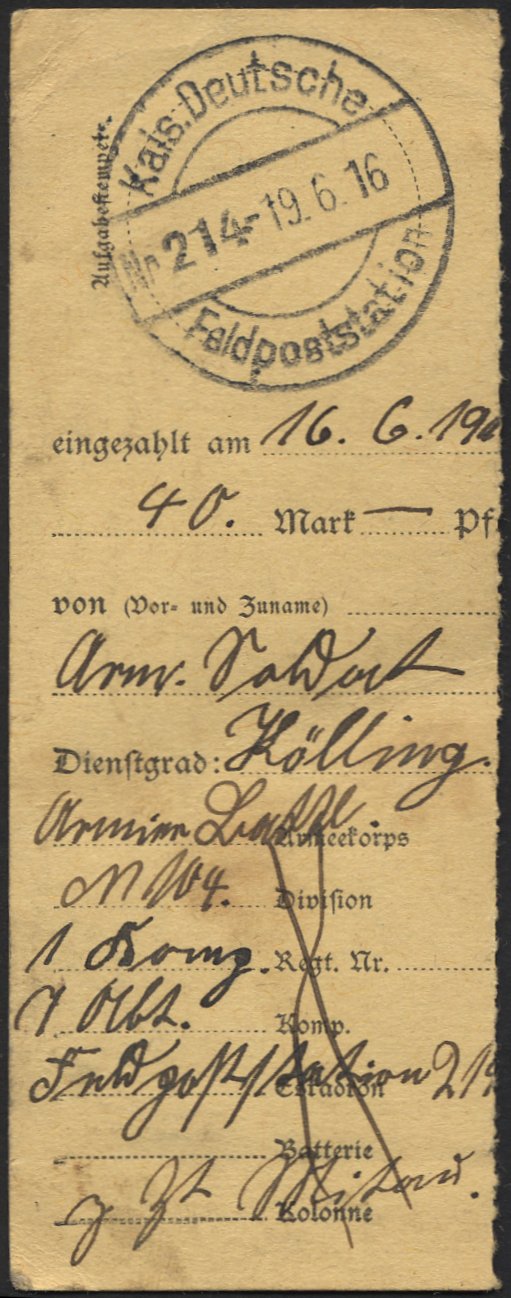 Aufgabestempel.
Kais. Deutsche
Nr. 214 - 19.6.16
Feldpoststation
eingezahlt am 16. 6. 19
40. Mark — Pf.
von (Vor- und Zuname)
Arm. Soldat
Dienstgrad: Kölling.
Armier. Batl. Armeekorps
N 104. Division
1 Komp. Regt. Nr.
7 Abt. Komp.
Feldpoststation 21 Eskadron
Batterie
z. Zt. Mitau. Kolonne